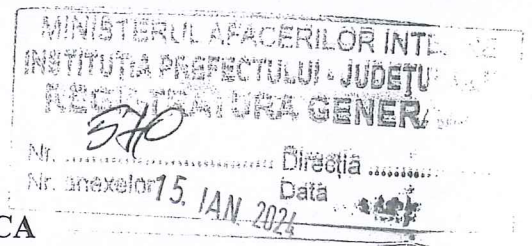 MINISTERUL AFACERILOR INTE
INSTITUȚIA PREFECTULUI - JUDEȚU
REGISTRATURA GENER
Nr. 570 Direcția
Nr. anexelor Data
15. IAN. 2024
CA